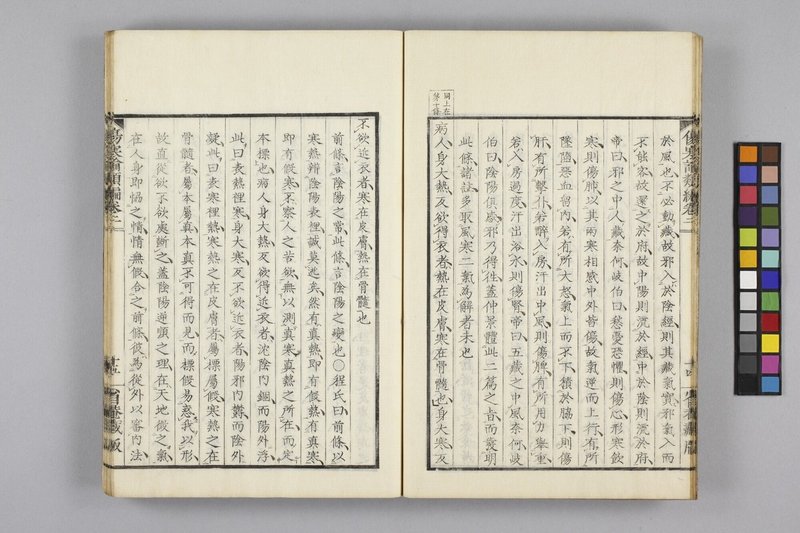 於風也不必動藏故邪入於陰經則其藏氣實邪氣入而
不能客故還之於府故中陽則流於經中於陰則流於府
帝曰邪之中人藏奈何岐伯曰愁憂恐懼則傷心形寒飲
寒則傷肺以其兩寒相感中外皆傷故氣逆而上行有所
墜墮惡血留內若有所大怒氣上而不下積於脇下則傷
肝有所擊仆若醉入房汗出中風則傷脾有所用力舉重
若入房過度汗出浴水則傷腎帝曰五藏之中風奈何岐
伯曰陰陽俱感邪乃得往蓋仲景體此二篇之旨而裏明
此條諸註多取風寒二氣為解者未也
同上在
病人身大熱反欲得衣者熱在皮膚寒在骨髓也身大寒反
不欲近衣者寒在皮膚熱在骨髓也
前條言陰陽之常此條言陰陽之變也○程氏曰前條以
寒熱辨陰陽表裡誠莫逃矣然有真熱即有假熱有真寒
即有假寒不察人之苦欲無以測真寒真熱之所在而定
本標也病人身大熱反欲得近衣者沈陰內錮而陽外浮
此曰表熱裡寒身大寒反不欲近衣者陽邪內鬱而陰外
凝此曰表寒裡熱寒熱之在皮膚者屬標屬假寒熱之在
骨髓者屬本屬真本真不可得而見而標假易惑我以形
故直從欲不欲處斷之蓋陰陽順逆之理在天地徵之氣
在人身即協之情情無假合之前條彼為從外以審內法
傷寒論類編卷二
傷寒論類編卷二